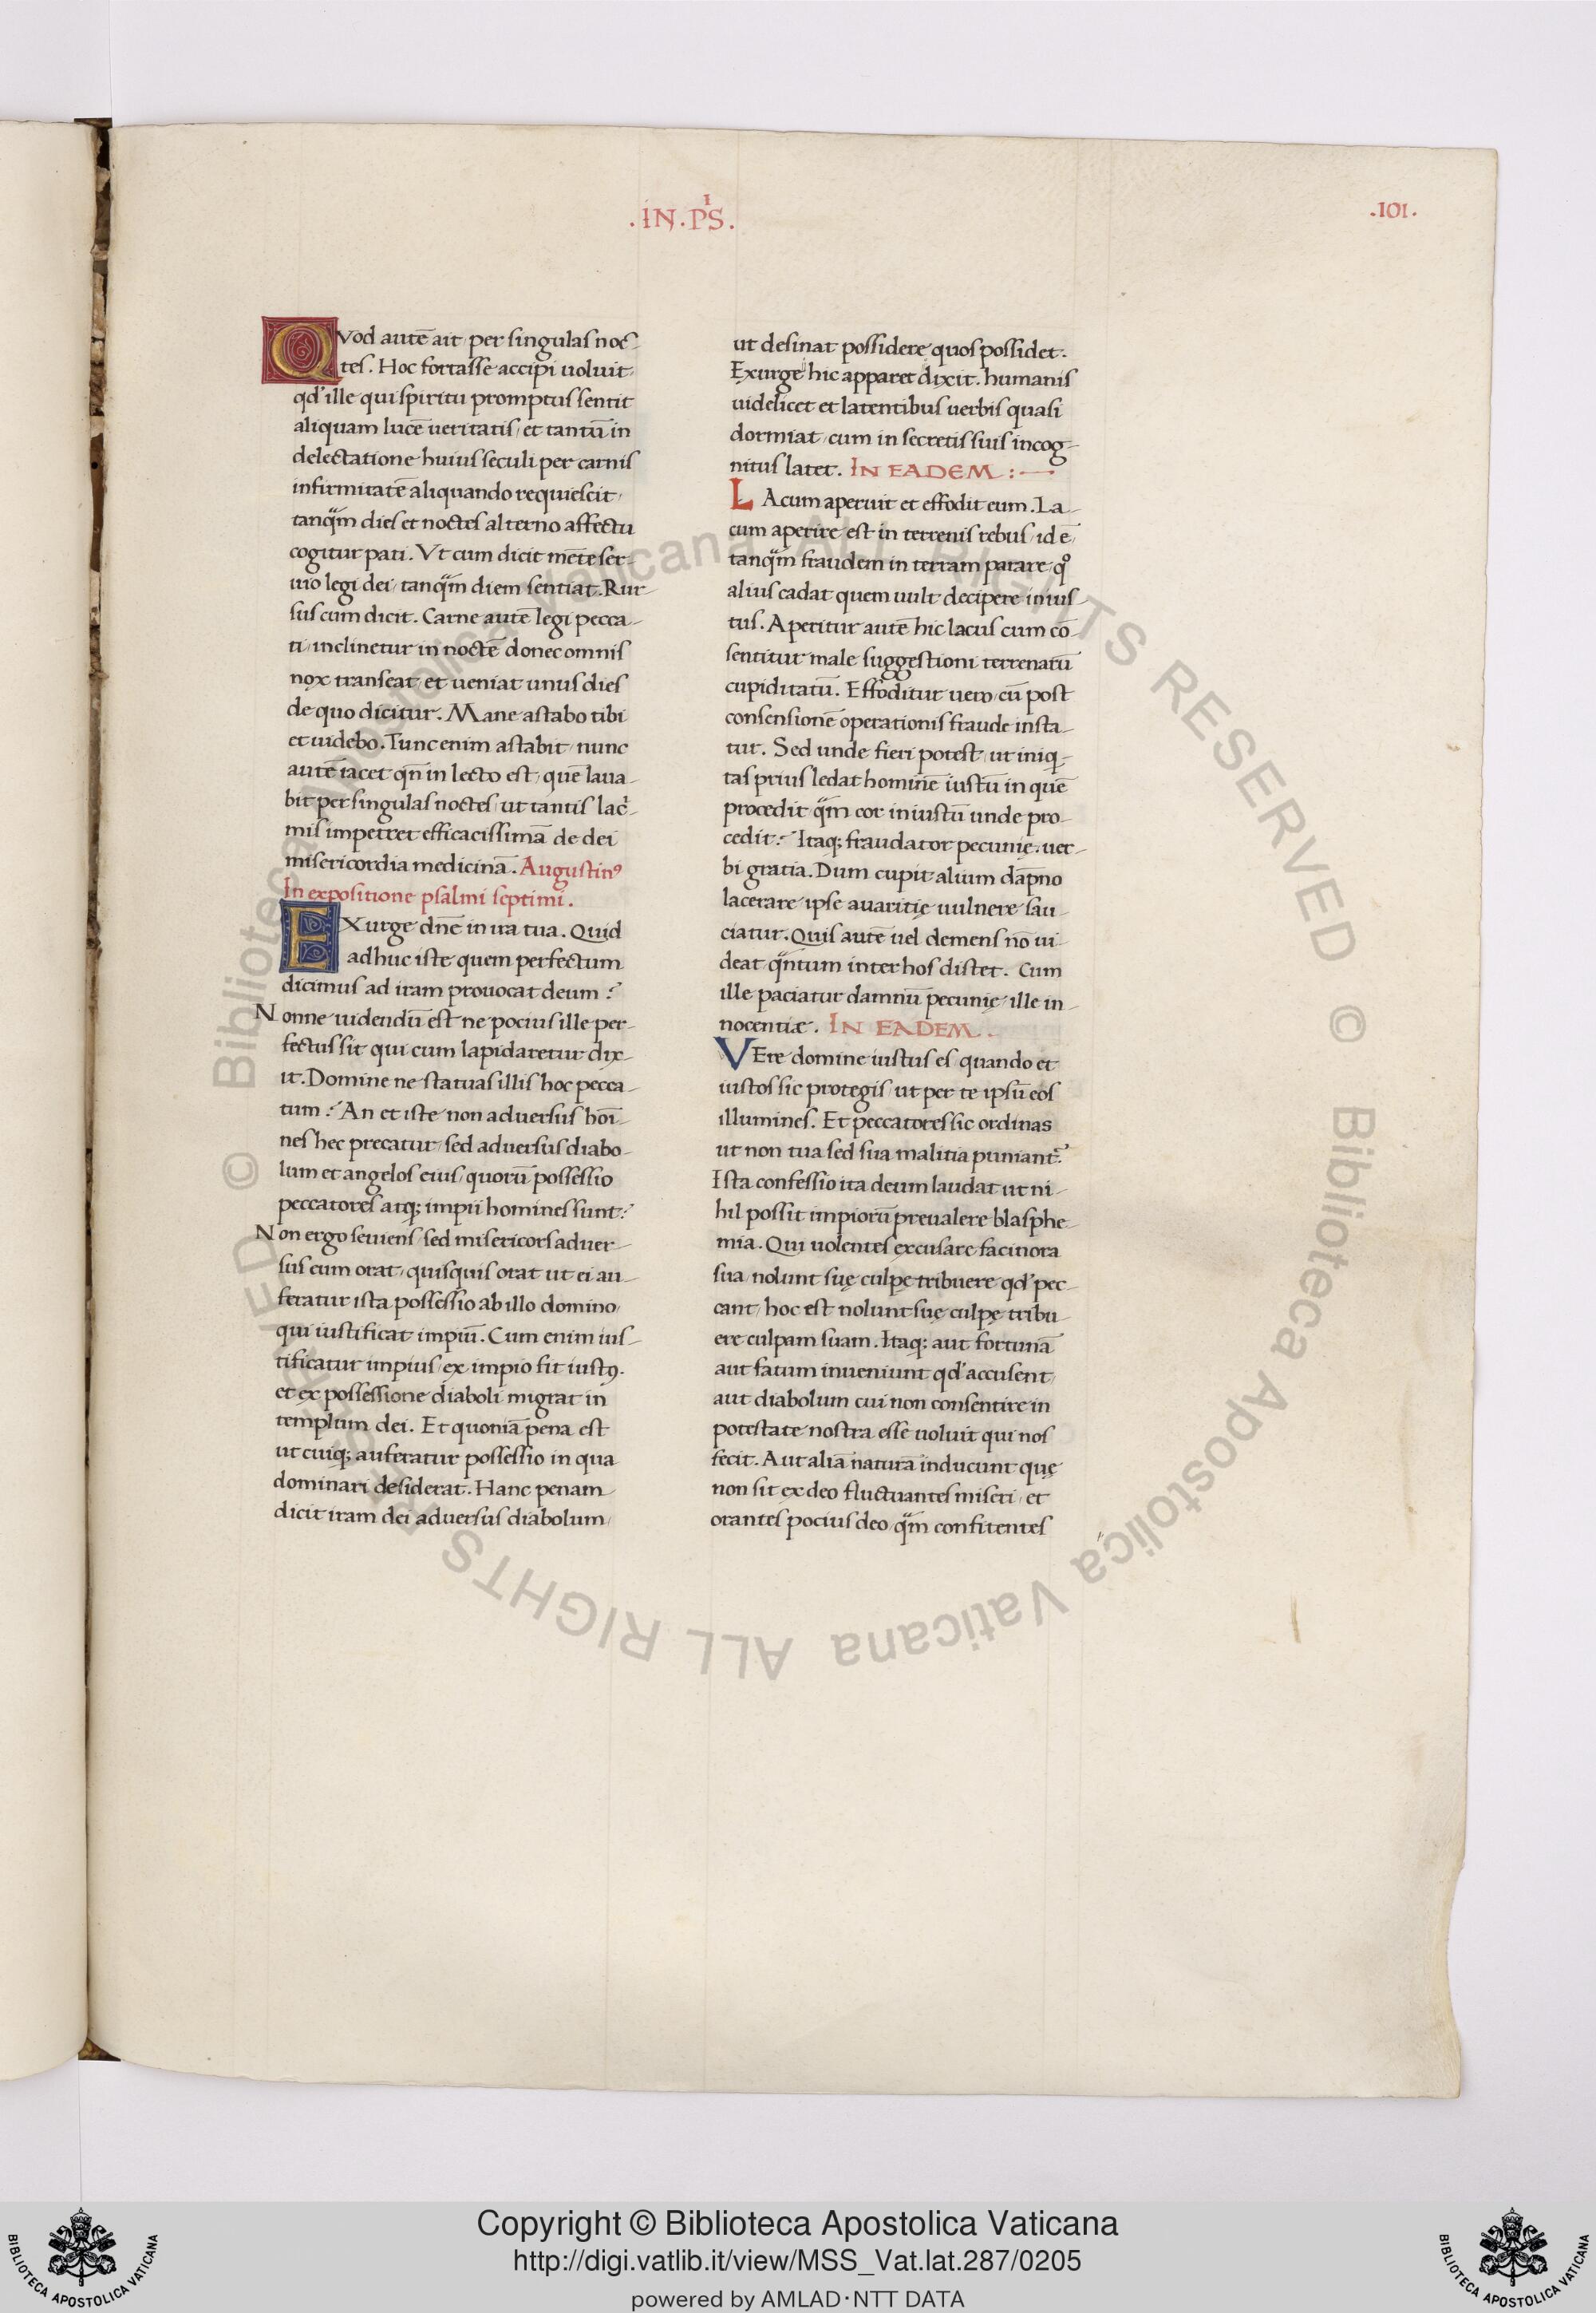 .IN.PS^I.
.101.
QVod autē ait per singulas noc-
tes. Hoc fortasse accipi uoluit
qd' ille qui spiritu promptus sentit
aliquam lucē ueritatis, et tantū in
delectatione huius seculi per carnis
infirmitatē aliquando requiescit,
tanq̈m dies et noctes alterno affectu
cogitur pati. Vt cum dicit mēte ser-
uio legi dei, tanq̈m diem sentiat. Rur-
sus cum dicit. Carne autē legi pecca-
ti, inclinetur in noctē donec omnis
nox transeat, et ueniat unus dies
de quo dicitur. Mane astabo tibi
et uidebo. Tunc enim astabit, nunc
autē iacet qn̄ in lecto est, quē laua-
bit per singulas noctes, ut tantis lac̓-
mis impetret efficacissimā de dei
misericordia medicinā. Augustinꝰ
In expositione psalmi septimi.
EXurge dn̄e in ira tua. Quid
adhuc iste quem perfectum
dicimus ad iram prouocat deum?
Nonne uidendū est ne pocius ille per-
fectus sit qui cum lapidaretur dix-
it. Domine ne statuas illis hoc pecca-
tum? An et iste non aduersus hoī-
nes hec precatur, sed aduersus diabo-
lum et angelos eius, quorū possessio
peccatores atq; impii homines sunt?
Non ergo seuiens, sed misericors aduer-
sus eum orat, quisquis orat ut ei au-
feratur ista possessio ab illo domino,
qui iustificat impiū. Cum enim ius-
tificatur impius, ex impio fit iustꝰ.
et ex possessione diaboli migrat in
templum dei. Et quoniā pena est
ut cuiq; auferatur possessio in qua
dominari desiderat. Hanc penam
dicit iram dei aduersus diabolum,
ut desinat possidere quos possidet.
Exurge hic apparet dixit. humanis
uidelicet et latentibus uerbis quasi
dormiat, cum in secretis suis incog-
nitus latet. IN EADEM :—
LAcum aperuit et effodit eum. La-
cum aperire est in terrenis rebus, id ē,
tanq̈m fraudem in terram parare, qͦ
alius cadat quem uult decipere inius-
tus. Aperitur autē hic lacus cum cō-
sentitur male suggestioni terrenarū
cupiditatū. Effoditur uero, cū post
consensionē operationis fraude insta-
tur. Sed unde fieri potest, ut iniq-
tas prius ledat hominē iustū in quē
procedit q̈m cor iniustū unde pro-
cedit? Itaq; fraudator pecunię, uer-
bi gratia. Dum cupit alium dāpno
lacerare ipse auaritię uulnere sau-
ciatur. Quis autē uel demens nō ui-
deat q̈ntum inter hos distet. Cum
ille paciatur damnū pecunię, ille in-
nocentiæ. IN EADEM..
VEre domine iustus es, quando et
iustos sic protegis, ut per te ipsū eos
illumines. Et peccatores sic ordinas
ut non tua sed sua malitia puniant'?
Ista confessio ita deum laudat ut ni-
hil possit impiorū preualere blasphe-
mia. Qui uolentes excusare facinora
sua, nolunt suę culpę tribuere qd' pec-
cant, hoc est nolunt suę culpę tribu-
ere culpam suam. Itaq; aut fortunā
aut fatum inueniunt qd' accusent,
aut diabolum cui non consentire in
potestate nostra esse uoluit qui nos
fecit. Aut aliā naturā inducunt quę
non sit ex deo fluctuantes miseri, et
orantes pocius deo, q̈m confitentes
© Biblioteca Apostolica Vaticana ALL RIGHTS RESERVED © Biblioteca Apostolica Vaticana ALL RIGHTS RESERVED
Copyright © Biblioteca Apostolica Vaticana
http://digi.vatlib.it/view/MSS_Vat.lat.287/0205
powered by AMLAD·NTT DATA
BIBLIOTECA APOSTOLICA VATICANA
BIBLIOTECA APOSTOLICA VATICANA